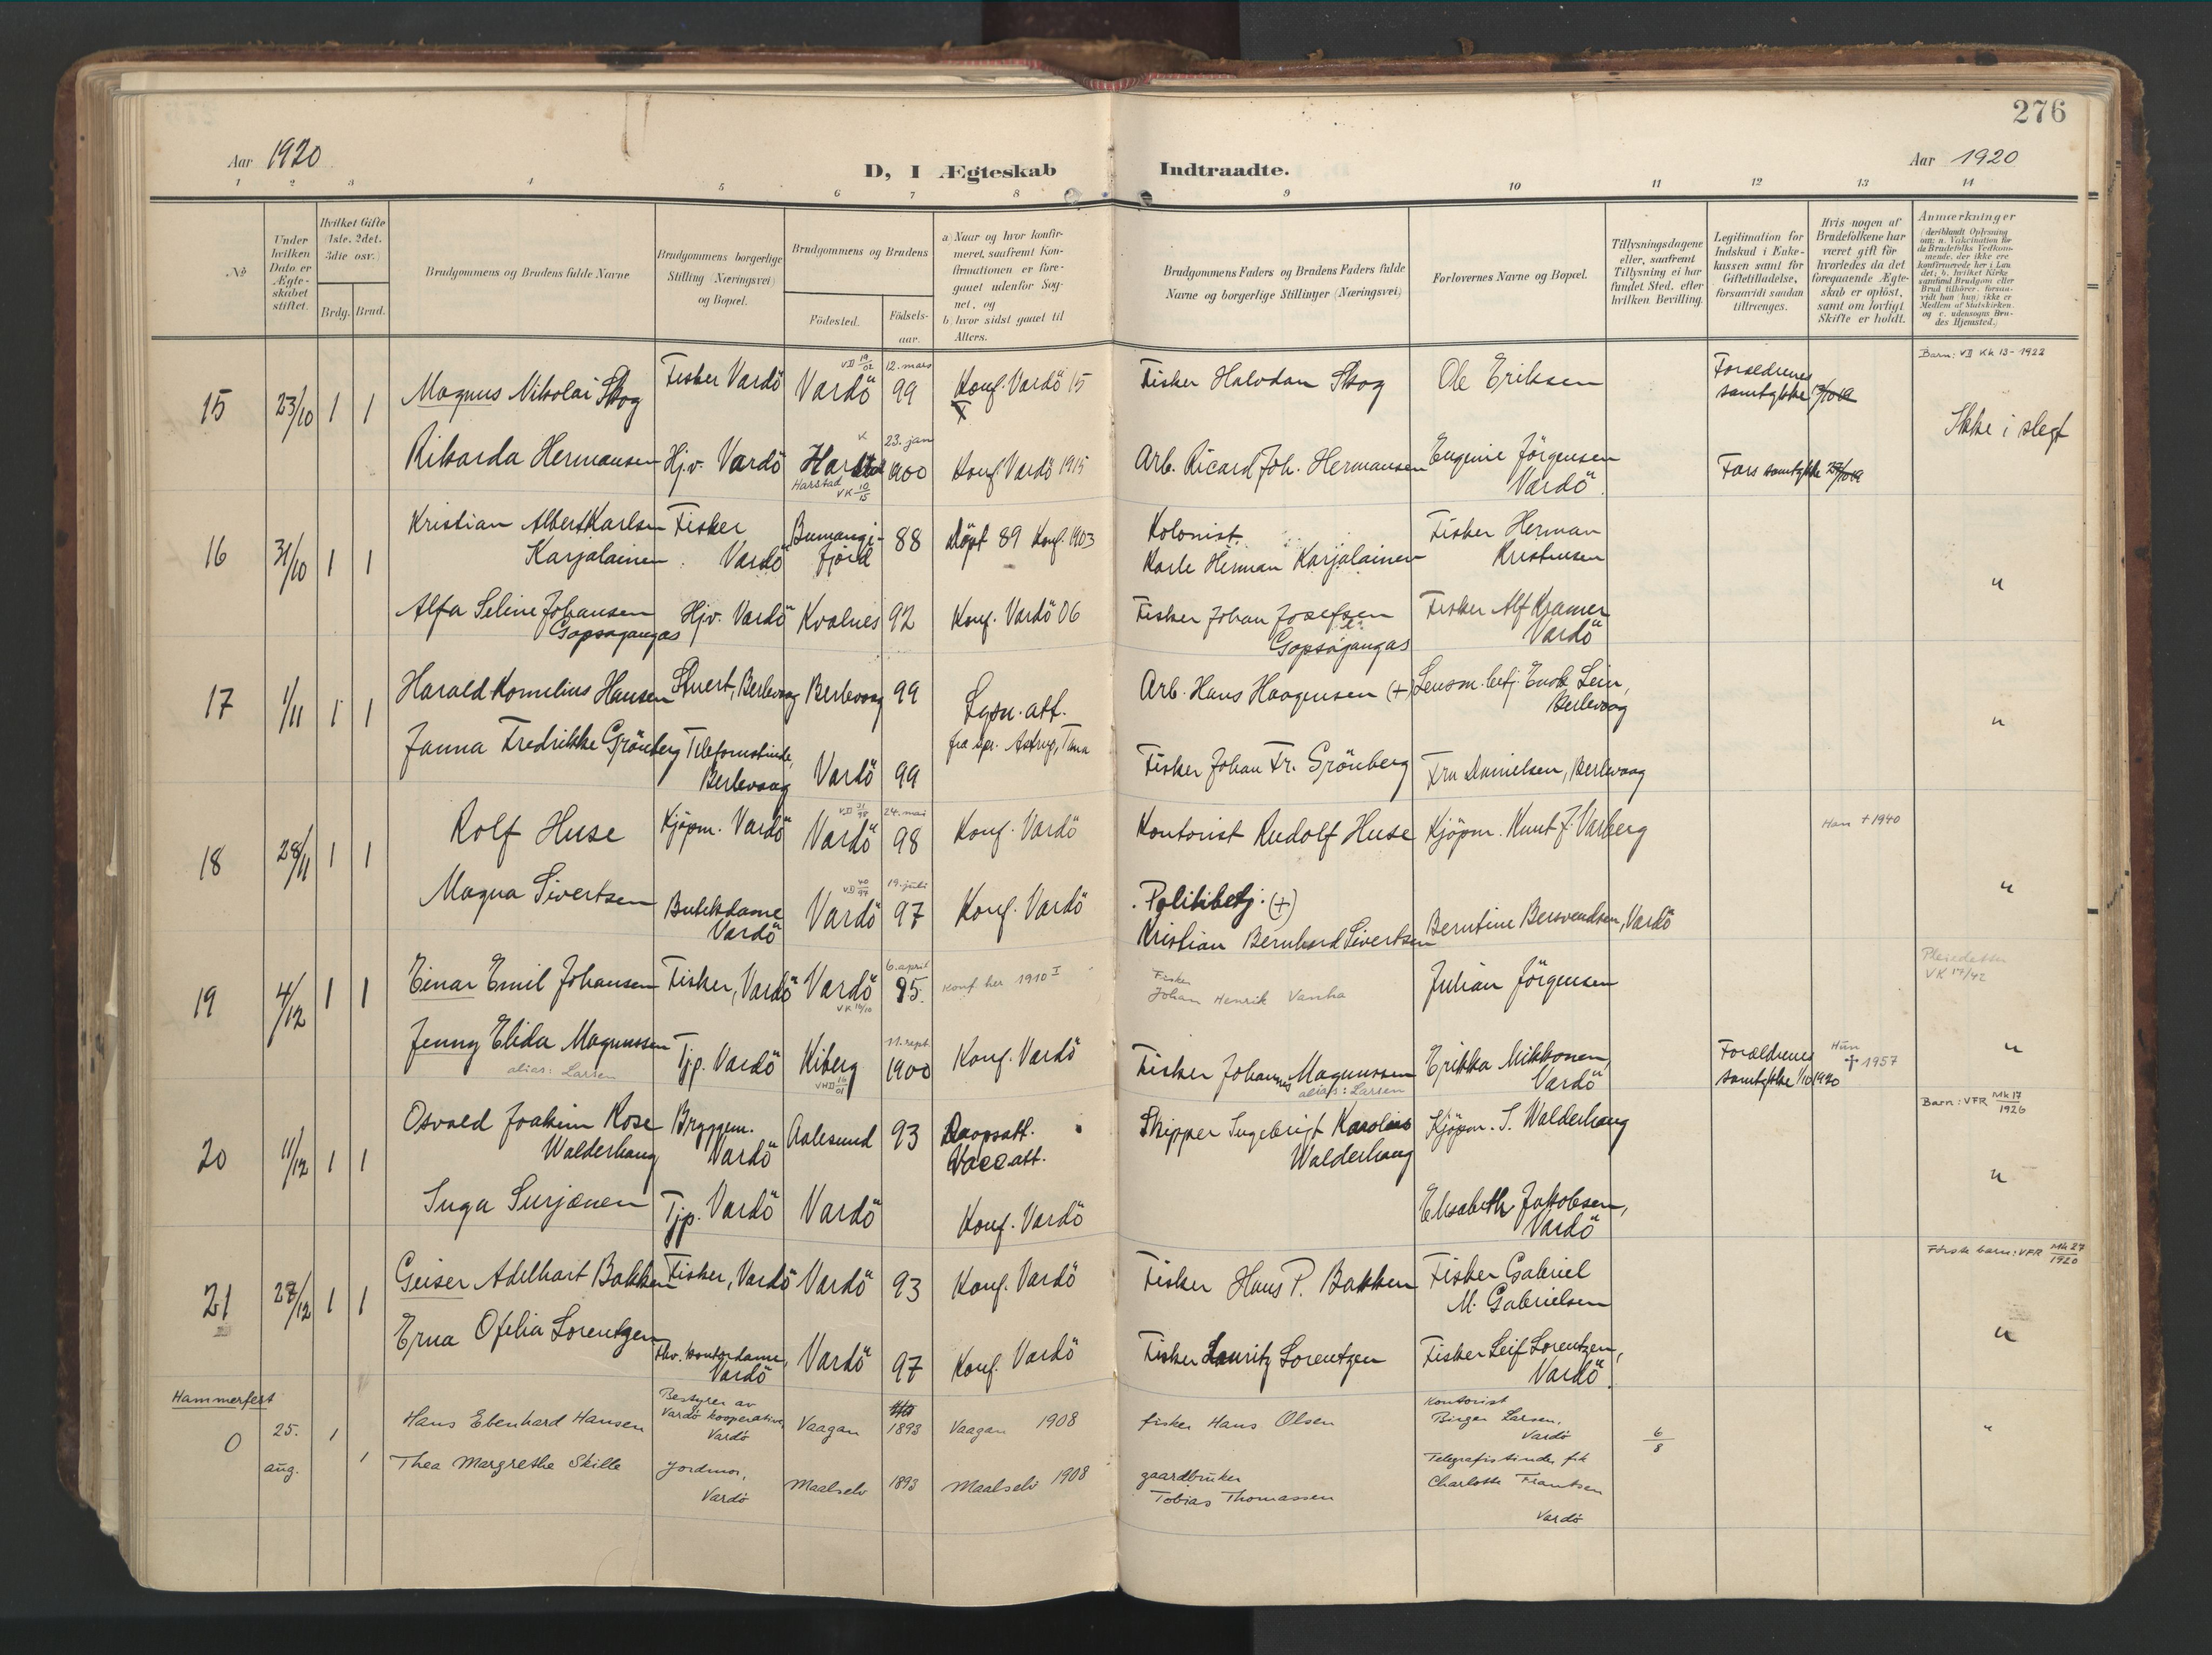 276
Aar 1920
D, I Ægteskab Indtraadte.
Aar 1920
1 2 3 4 5 6 7 8 9 10 11 12 13 14
No
Under hvilken Dato er Ægteskabet stiftet.
Hvilket Gifte (1ste, 2det, 3die osv.)
Brdg. Brud.
Brudgommens og Brudens fulde Navne
Brudgommens borgerlige Stilling (Næringsvei) og Bopæl.
Brudgommens og Brudens
Födested. Födsels-aar.
a) Naar og hvor konfirmeret, saafremt Konfirmationen er foregaaet udenfor Sognet, og
b) hvor sidst gaaet til Alters.
Brudgommens Faders og Brudens Faders fulde Navne og borgerlige Stillinger (Næringsvei)
Forlovernes Navne og Bopæl.
Tillysningsdagene eller, saafremt Tillysning ei har fundet Sted, efter hvilken Bevilling.
Legitimation for Indskud i Enkekassen samt for Giftetilladelse, forsaavidt saadan tiltrænges.
Hvis nogen af Brudefolkene har været gift för hvorledes da det foregaaende Ægteskab er oplöst, samt om lovligt Skifte er holdt.
Anmærkninger (deriblandt Oplysning om: a. Vakcination for de Brudefolks Vedkommende, der ikke ere konfirmerede her i Landet; b. hvilket Kirkesamfund Brudgom eller Brud tilhörer, forsaavidt han (hun) ikke er Medlem af Statskirken, og c. udensogns Brudes Hjemsted.)
15 23/10 1 1 Magnus Nikolai Skog Fisker Vardö VD 19/02 Vardö 12. mars 99 Konf. Vardö 15 Fisker Halvdan Skog Ole Eriksen Foraldrenes samtykke 13/10 19 Barn: VD Kk 13-1922
Ikke i slegt
Rikarda Hermansen Hjv. Vardö Harstad Harstad VK 10/15 23. jan 1900 Konf Vardö 1915 Arb. Ricard Joh. Hermansen Eugenie Jörgensen Vardö Fars samtykke
16 31/10 1 1 Kristian Albert Karlsen Karjalainen Fisker Vardö Bumangifjord 88 döpt 89 Konf. 1903 Kolonist Karle Herman Karjalainen Fisker Herman Kristensen "
Alfa Seline Johansen Gapsagangas Hjv. Vardö Kvalnes 92 Konf. Vardö 06 Fisker Johan Josefsen Gapsajangas Fisker Alf Kramer Vardö
17 1/11 1 1 Harald Kornelius Hansen Stuert, Berlevaag Berlevaag 99 Lysn. att. fra spr. Astrup, Tana Arb. Hans Haagensen (+) Lensm. betj. Enok Lein, Berlevaag "
Janna Fredrikke Grönberg Telefonistinde, Berlevaag Vardö 99 Fisker Johan Fr. Grönberg Fru Danielsen, Berlevaag
18 28/11 1 1 Rolf Huse Kjöpm. Vardö VD 21/98 Vardö 24. mai 98 Konf. Vardö Kontorist Rudolf Huse Kjöpm. Knut J. Varberg Han + 1940
"
Magna Sivertsen Butikdame Vardö VD 40/97 Vardö 19. juli 97 Konf. Vardö Politibetj. (+) Kristian Bernhard Sivertsen Berntine Bersvendsen, Vardö
19 4/12 1 1 Einar Emil Johansen Fisker, Vardö Vardö VK 10/10 6. april 95. Konf her 1910 I Fisker Johan Henrik Vanha Julian Jörgensen VK 17/42
Jenny Elida Magnussen alias: Larsen Tjp. Vardö Kiberg 11. sept 1900 Konf. Vardö Fisker Johannes Magnussen alias: Larsen Erikka Mikkonen Vardö Foraldrenes samtykke 1/10 1920 Hun + 1957 "
20 11/12 1 1 Osvald Joakim Rose Walderhaug Bryggem. Vardö Aalesund 93 Daapsatt. Vacc. att. Skipper Ingebrigt Karolius Walderhaug Kjöpm. S. Walderhaug Barn: VFR Mk 17/1926
"
Inga Surjanen Tjp. Vardö Vardö Konf. Vardö Elisabeth Jakobsen, Vardö
21 28/12 1 1 Geiser Adelhart Bakken Fisker, Vardö Vardö 93 Konf. Vardö Fisker Hans P. Bakken Fisker Gabriel M. Gabrielsen Första barn: VFR Mk 27/1920
"
Erna Ofelia Lorentzen fhv. kontordame, Vardö Vardö 97 Konf. Vardö Fisker Lauritz Lorentzen Fisker Leif Lorentzen, Vardö
Hammerfest
0 25. aug. 1 Hans Ebenhard Hansen Bestyrer av Vardö kooperative, Vardö Vaagan 1893 Vaagan 1908 fisker Hans Olsen Kontorist Birger Larsen, Vardö 6/8 "
1 Thea Margrethe Skille Jordmor, Vardö Maalselv 1893 Maalselv 1908 gaardbruker Tobias Thomassen Telegrafistinde, frk Charlotte Frantsen Vardö